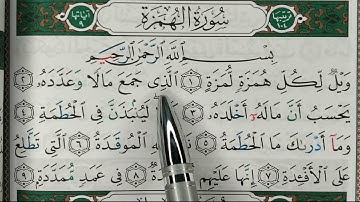 ترتيبها ١٠٤ سُورَةُ الْهُمَزَةِ آياتها ٩
بِسْمِ اللَّهِ الرَّحْمَٰنِ الرَّحِيمِ
وَيْلٌ لِّكُلِّ هُمَزَةٍ لُّمَزَةٍ ١ الَّذِي جَمَعَ مَالًا وَعَدَّدَهُ ٢
يَحْسَبُ أَنَّ مَالَهُ أَخْلَدَهُ ٣ لَيُنبَذَنَّ فِي الْحُطَمَةِ ٤
وَمَا أَدْرَاكَ مَا الْحُطَمَةُ ٥ الْمُوقَدَةُ ٦ الَّتِي تَطَّلِعُ
عَلَى الْأَفْئِدَةِ ٧ إِنَّهَا عَلَيْهِم ٨ فِي عَمَدٍ مُّمَدَّدَةٍ ٩